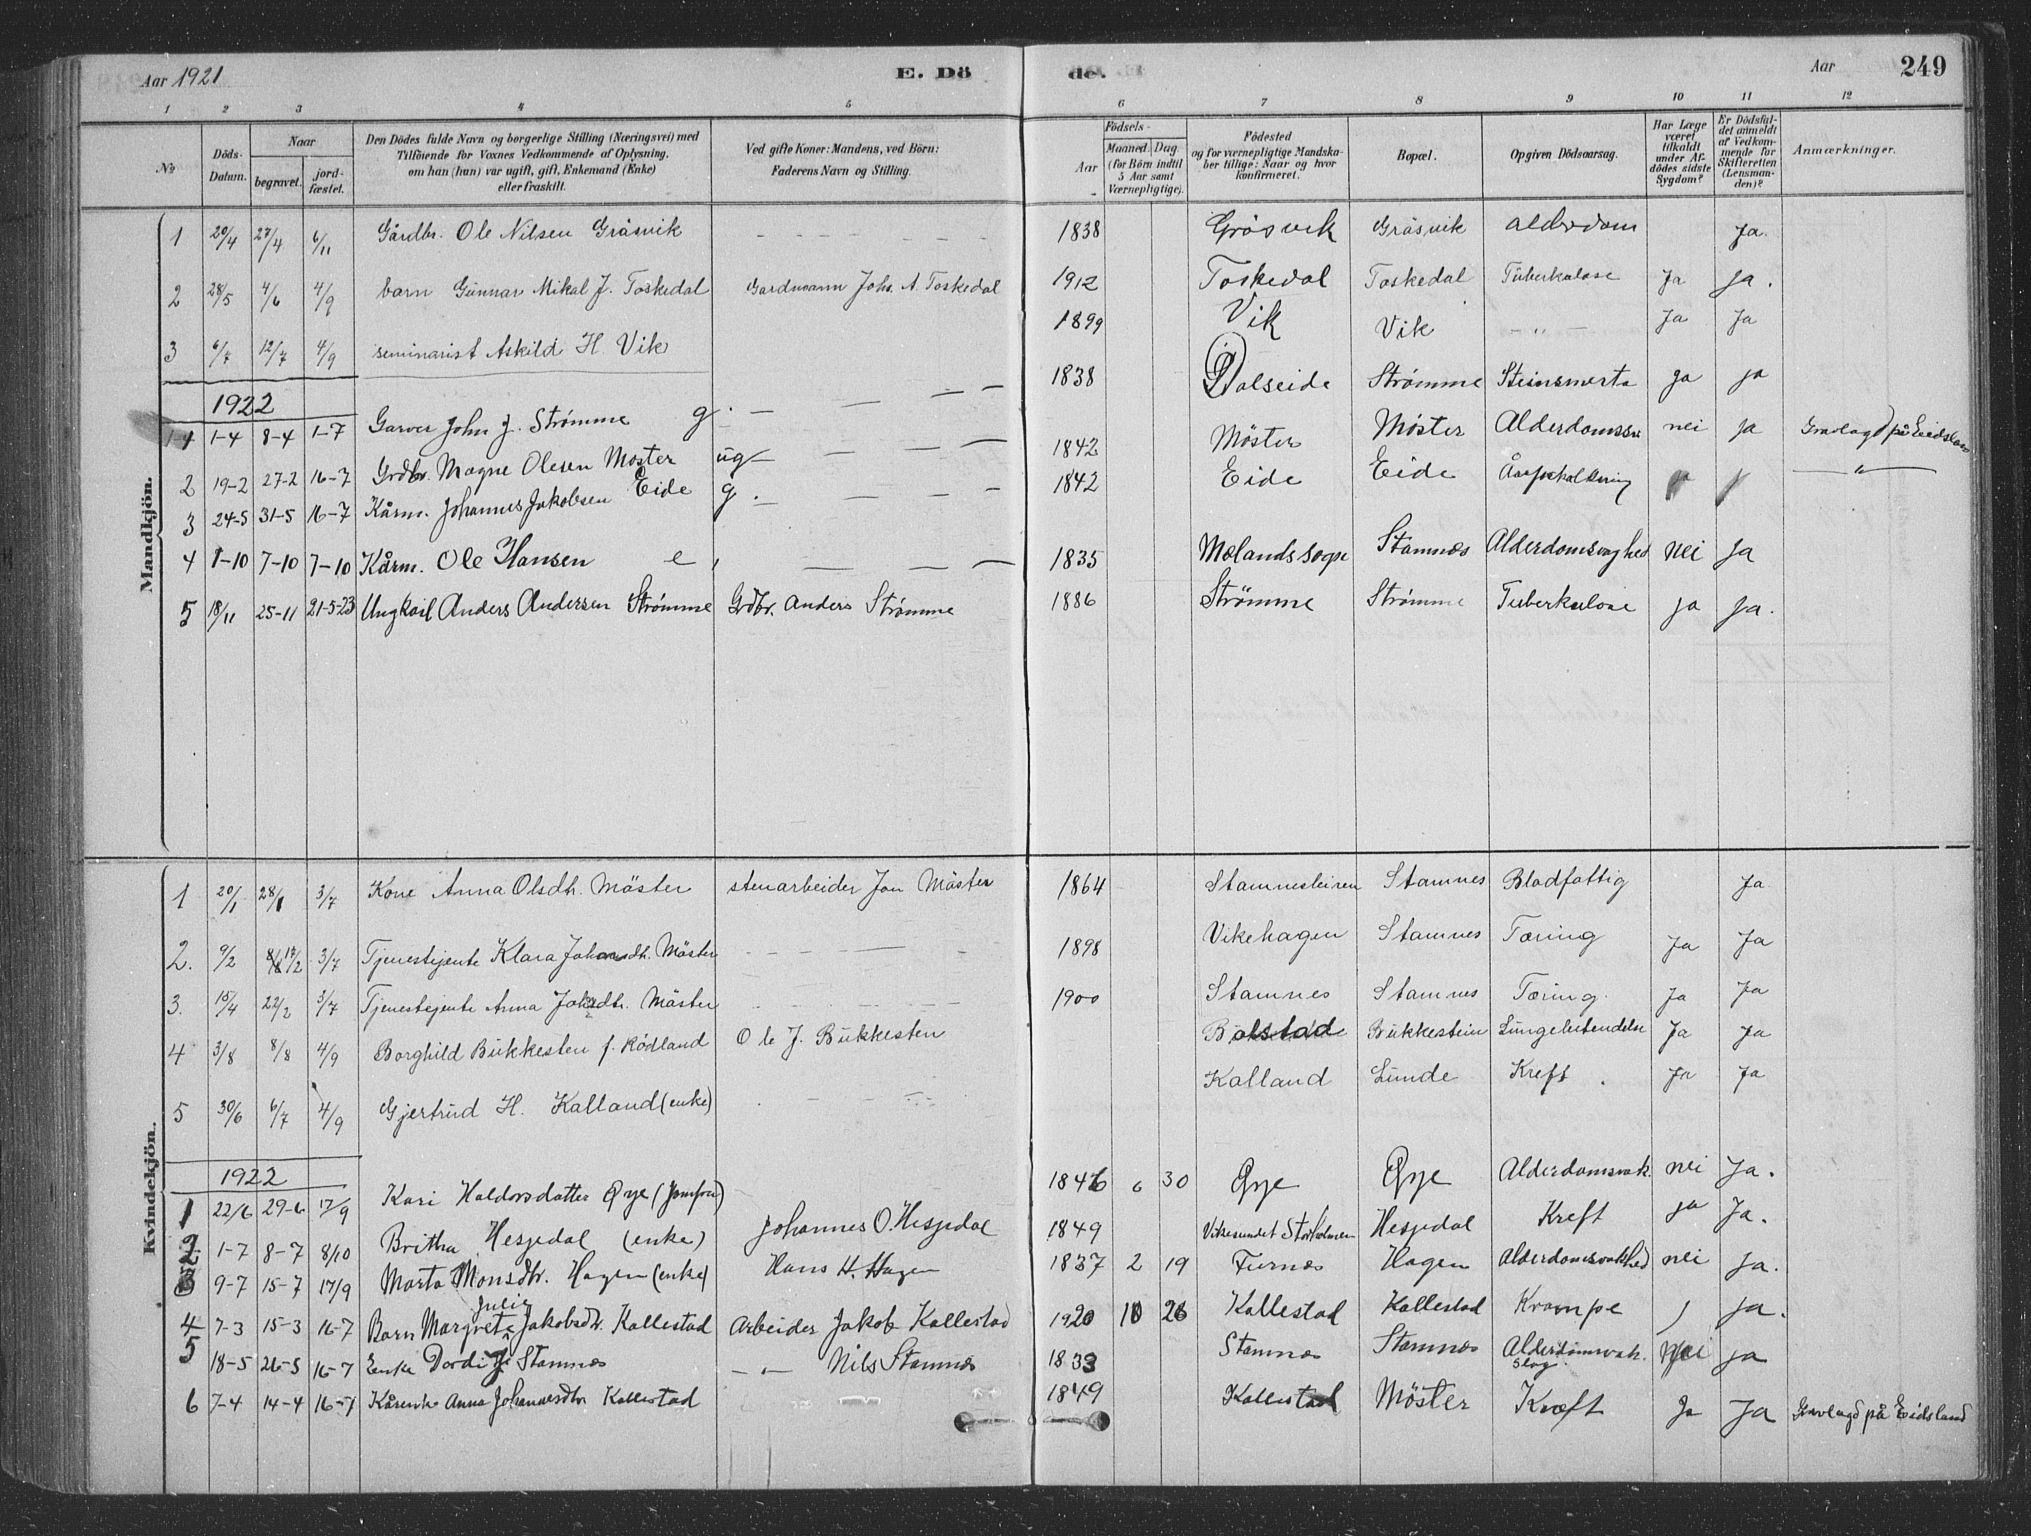 Aar 1921 E. Dö de. Aar 249
1 2 3 4 5 6 7 8 9 10 11 12
No Döds-Datum. Naar begravet. jordfæstet. Den Dödes fulde Navn og borgerlige Stilling (Næringsvei) med Tilföiende for Voxnes Vedkommende af Oplysning, om han (hun) var ugift, gift, Enkemand (Enke) eller fraskilt. Ved gifte Koner: Mandens, ved Börn: Faderens Navn og Stilling. Födsels- Aar Maaned. Dag (for Börn indtil 5 Aar samt Værnepligtige). Födested og for værnepligtige Mandskaber tillige: Naar og hvor konfirmeret. Bopæl. Opgiven Dödsaarsag. Har Læge været tilkaldt under Afdödes sidste Sygdom? Er Dödsfaldet anmeldt af Vedkommende for Skifteretten (Lensmanden)? Anmærkninger.
Mandkjön.
1 20/4 27/4 6/11 Gårdbr. Ole Nilsen Gråsvik — 1838 Gråsvik Gråsvik Alderdom Ja.
2 28/5 4/6 4/9 barn Gunnar Mikal J. Toskedal Gardmann Johs. A. Toskedal 1912 Toskedal Toskedal Tuberkulose Ja Ja.
3 6/7 12/7 4/9 seminarist Askild H. Vik 1899 Vik Vik — " — Ja Ja
1922
1 1-4 8-4 1-7 Garver John J. Strømme g. — 1838 Dalseide Strømme Steinsmerta ja ja
2 19-2 27-2 16-7 Grdbr. Magne Olesen Møster ug — 1842 Möster Møster nei ja Gravlagd på Eidsland
3 24-5 31-5 16-7 Kårm. Johannes Jakobsen Eide g. — 1842 Eide Eide — " —
4 1-10 7-10 7-10 Kårm. Ole Hansen e, — 1835 Mælands sogn Stamnæs Alderdomsvaghed nei Ja
5 18/11 25-11 21-5-23 Ungkarl Anders Andersen Strømme Grdbr. Anders Strømme 1886 Strömme Strömme Tuberkulose ja Ja.
Kvindekjön.
1 20/1 28/1 3/7 Kone Anna Olsdtr. Möster stenarbeider Jon Möster 1864 Stamnesleiren Stamnes Blodfattig Ja
2. 9/2 17/2 3/7 Tjenestjente Klara Johansdtr. Möster — 1898 Vikehagen Stamnes Tæring Ja Ja
3. 15/4 22/2 3/7 Tjenestejente Anna Möster — 1900 Stamnes Stamnes Tæring Ja Ja
4 3/8 8/8 4/9 Borghild Bukkesten f. Rödland Ole J. Bukkesten Bolstad Bukkestein Lungebetendelse Ja Ja
5 30/6 6/7 4/9 Gjertrud H. Kalland (enke) — Kalland Lunde Kreft. Ja Ja
1922
1 22/6 29-6 17/9 Kari Haldorsdatter Øye (Jomfru) 1846 6 30 Øye Øye Alderdomsvak. nei Ja.
2 1-7 8-7 8/10 Britha Hesjedal (enke) Johannes O. Hesjedal 1849 Vikesundet Storholmen Hesjedal Kreft ja Ja.
3 9-7 15-7 17/9 Marta Monsdtr. Hagen (enke) Hans H. Hagen 1837 2 19 Furnæs Hagen Alderdomsvakhed nei Ja.
4 7-3 15-3 16-7 Barn Margreta Julie Jakobsdtr. Kallestad Arbeider Jakob Kallestad 1920 10 26 Kallestad Kallestad Krampe ja.
5 18-5 26-5 16-7 Enke Dordi J. Stamnæs — " — Nils Stamnæs 1833 Stamnæs Stamnæs Alderdomsvak. slag. Nei ja
6 7-4 14-4 16-7 Kårenke Anna Johannesdtr Kallestad 1849 Kallestad Möster Kræft Ja Ja Gravlagd på Eidsland